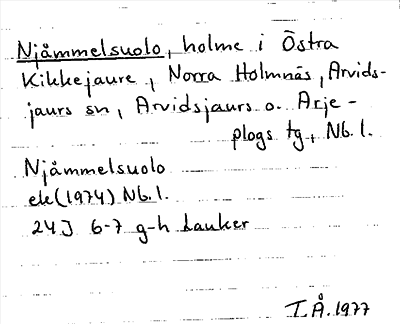 Njåmmelsuolo, holme i Östra
Kikkejaure, Norra Holmnäs, Arvids-
jaurs sn, Arvidsjaurs o. Arje-
plogs tg, Nb. l.
Njåmmelsuolo
ek (1974) Nb. l.
24J 6-7 g-h Lauker
I.Å. 1977